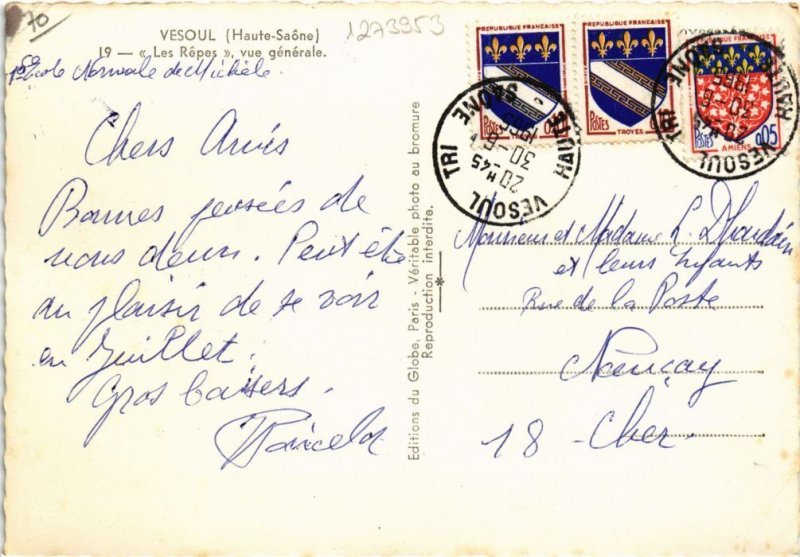 70
VESOUL (Haute-Saône)
19 — « Les Rêpes », vue générale.
1273953
Ecole Normale de Michèle
Chers Amis
Bonnes pensées de
nous deux. Peut être
au plaisir de se voir
en Juillet.
Gros baisers.
Editions du Globe, Paris - Véritable photo au bromure
Reproduction interdite.
REPUBLIQUE FRANÇAISE
POSTES
REPUBLIQUE FRANÇAISE
POSTES
TROYES
REPUBLIQUE FRANÇAISE
POSTES
0,05
AMIENS
VESOUL TRI
HAUTE SAONE
20 H 45
30-6
VESOUL TRI
HAUTE SAONE
Monsieur et Madame
et leurs Enfants
Rue de la Poste
Nançay
18 - Cher